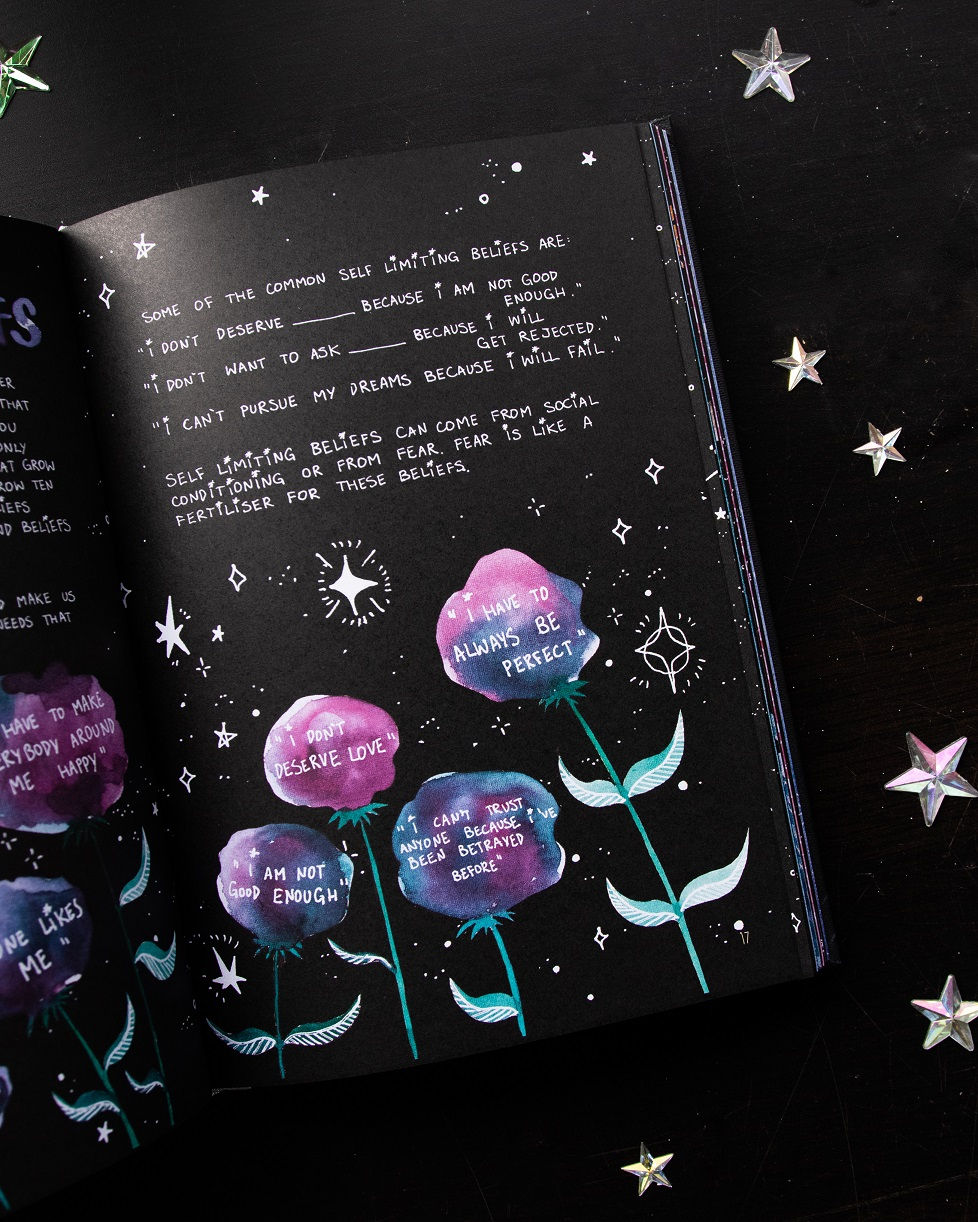 FS
ER
THAT
OU
ONLY
AT GROW
ROW TEN
IEFS
ND BELIEFS
MAKE US
NEEDS THAT
HAVE TO MAKE
ERYBODY AROUND
ME HAPPY"
ONE LIKES
ME"
SOME OF THE COMMON SELF LIMITING BELIEFS ARE:
"I DON'T DESERVE ______ BECAUSE I AM NOT GOOD
ENOUGH."
"I DON'T WANT TO ASK ______ BECAUSE I WILL
GET REJECTED."
"I CAN'T PURSUE MY DREAMS BECAUSE I WILL FAIL."
SELF LIMITING BELIEFS CAN COME FROM SOCIAL
CONDITIONING OR FROM FEAR. FEAR IS LIKE A
FERTILISER FOR THESE BELIEFS.
"I HAVE TO
ALWAYS BE
PERFECT"
"I DON'T
DESERVE LOVE"
"I CAN'T TRUST
ANYONE BECAUSE I'VE
BEEN BETRAYED
BEFORE"
"I AM NOT
GOOD ENOUGH"
17